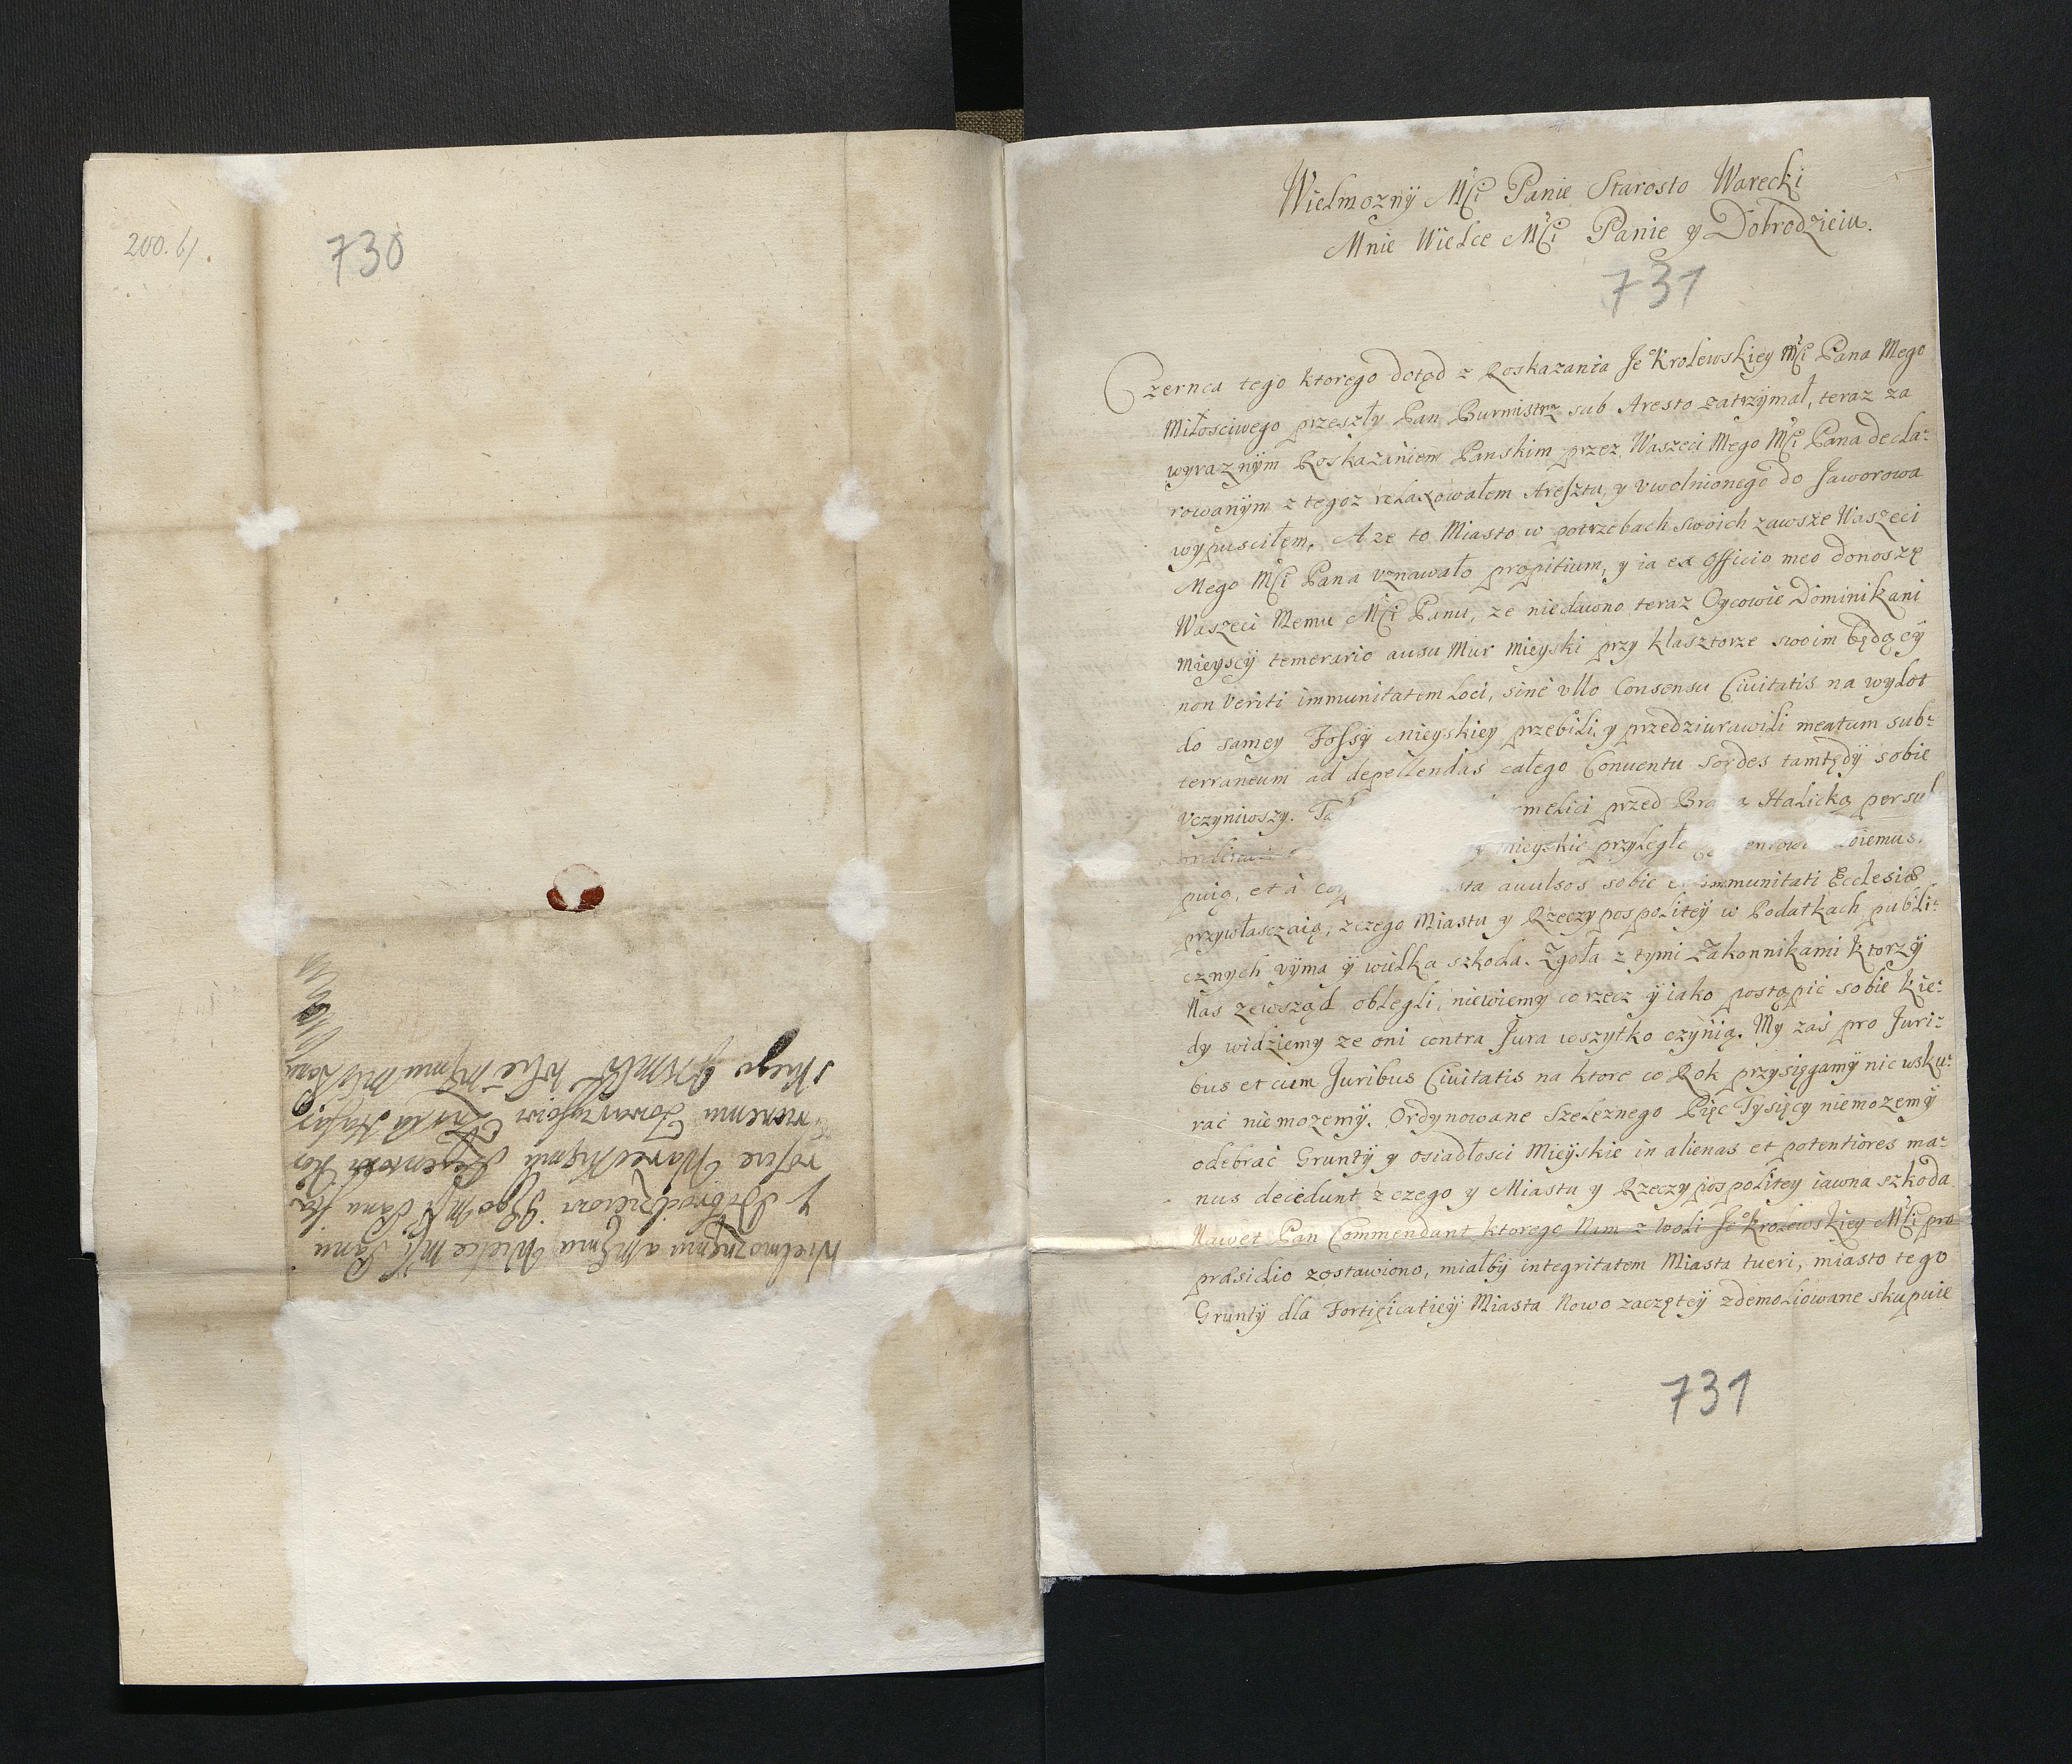 200. b/.
730
Wielmoznemu a Mẽmu Wielce Mći Panu
y Dobrodzieiowi Jego Mći Panu Sta
roscie Wareckiemu
runemu Towarzyszowi
skiego
Wielmoznÿ Mći Panie Starosto Warecki
Mnie Wielce Mći Panie y Dobrodzieiu.
731
Czernca tego ktorego dotąd z Roskazania Je° Krolewskiey Mći Pana Mego
Miłosciwego przeszłÿ Pan Burmistrz sub Aresto zatrzÿmał, teraz za
wÿraznÿm Roskazaniem Panskim przez Waszeci Mego Mći Pana decla-
rowanÿm z tegoz relaxowałem Aresztu, y vwolnionego do Jaworowa
wypusciłem. A ze to Miasto w potrzebach swoich zawsze Waszeci
Mego Mći Pana vznawało propitium, y ia ex Officio meo donoszę
Waszeci Memu Mći Panu, ze niedawno teraz Oycowie Dominikani
Mieyscÿ temerario ausu Mur Mieyski przy klasztorze swoim będącÿ
non Veriti immunitatem Loci, sine vllo Consensu Ciuitatis na wylot
do samey Fossÿ Mieyskiey przebili, y przedziurawili meatum sub-
terraneum ad depellendas całego Conuentu Sordes tamtędÿ sobie
vczyniwszy. Ta rmelici przed Bra a Halicką per sub
mieyskie przyległe oiemus.
puią, et à co sta auulsos sobie immunitati Ecclesiæ
przywłasczaią, zczego Miastu y Rzeczypospolitey w Podatkach publi-
cznych vÿma ÿ wielka szkoda. Zgoła z tymi Zakonnikami ktorzÿ
Nas zewsząd oblegli, niewiemy co rzecz ÿ iako postąpic sobie kie-
dy widziemy ze oni contra Jura wszytko czÿnią. My zaś pro Juri-
bus et cum Juribus Ciuitatis na ktore co Rok przysięgamÿ nic wsku-
rać niemozemÿ. Ordynowane Szelęznego Pięc Tysięcy niemozemÿ
odebrać Gruntÿ y osiadłosci Mieÿskie in alienas et potentiores ma-
nus decedunt z czego y Miastu y Rzeczypospolitey iawna szkoda
Nawet Pan Commendant ktorego Nam z woli Je° Krolewskiey Mći pro
præsidio zostawiono, miałbÿ integritatem Miasta tueri, miasto tego
Gruntÿ dla Fortificatieÿ Miasta Nowo zaczętey zdemoliowane skupuie
731